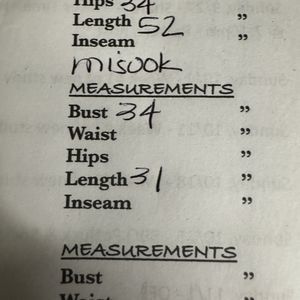 Hips 34 ”
Length 52 ”
Inseam ”
misook
MEASUREMENTS
Bust 34 ”
Waist ”
Hips ”
Length 31 ”
Inseam ”
MEASUREMENTS
Bust ”
Waist ”